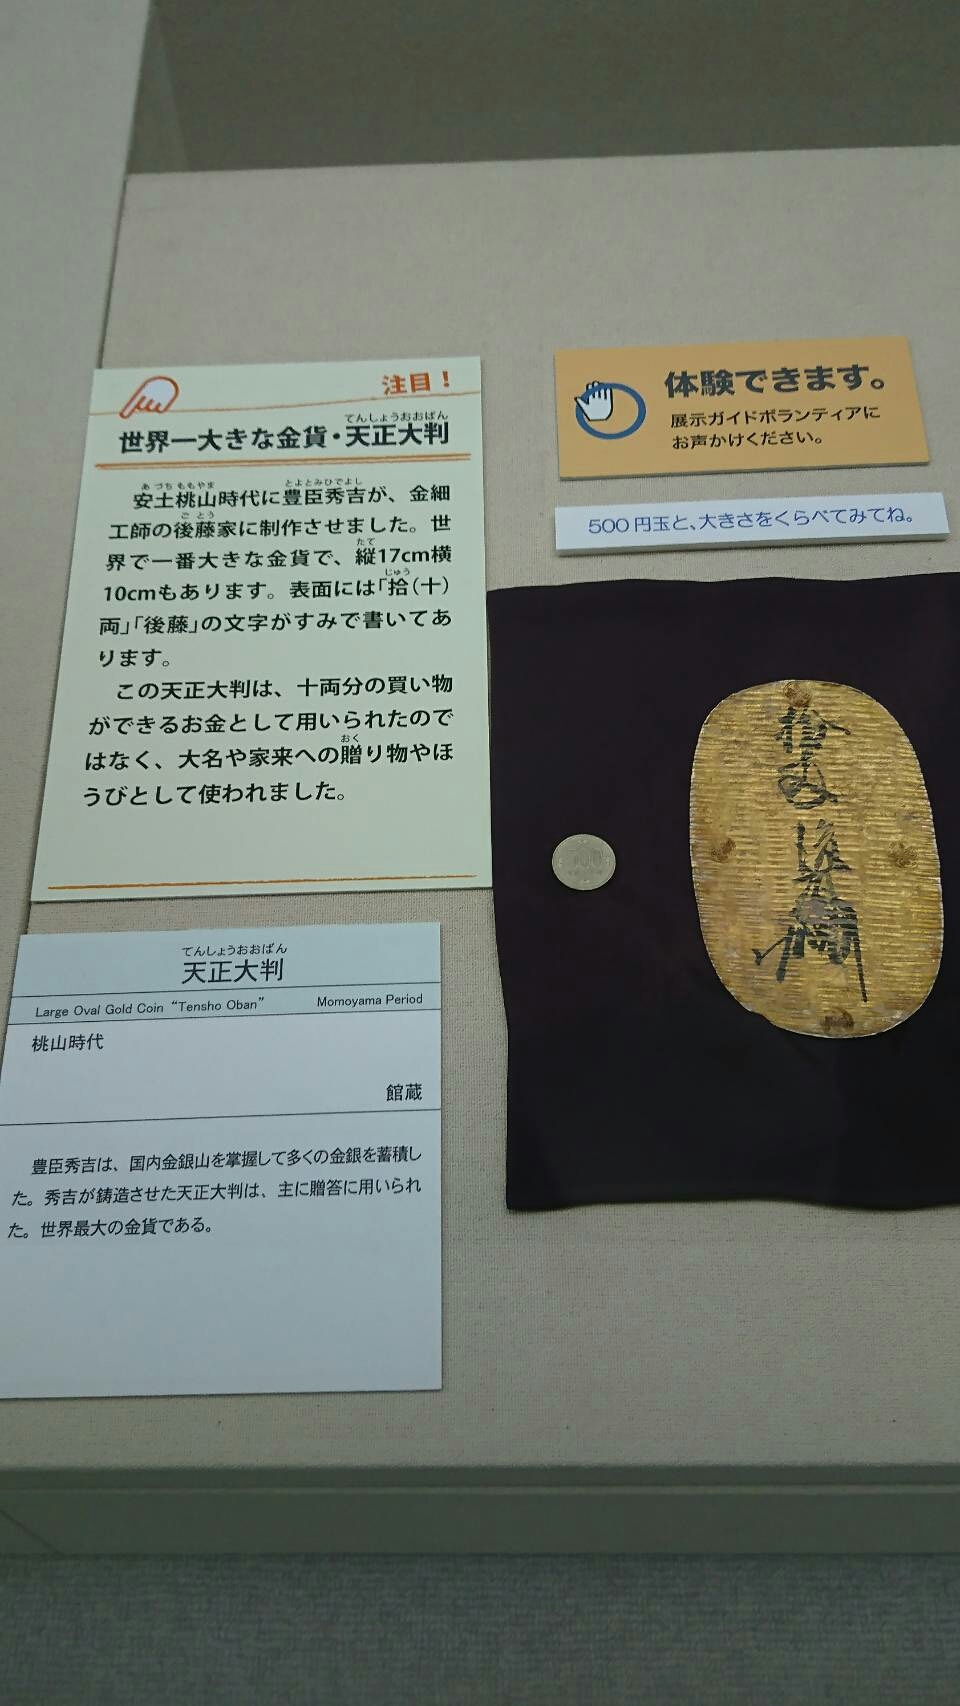 注目！
てんしょうおおばん
世界一大きな金貨・天正大判
あづちももやま とよとみひでよし
安土桃山時代に豊臣秀吉が、金細
ごとう
工師の後藤家に制作させました。世
たて
界で一番大きな金貨で、縦17cm横
じゅう
10cmもあります。表面には「拾（十）
両」「後藤」の文字がすみで書いてあ
ります。
この天正大判は、十両分の買い物
ができるお金として用いられたので
おく
はなく、大名や家来への贈り物やほ
うびとして使われました。
体験できます。
展示ガイドボランティアに
お声かけください。
500円玉と、大きさをくらべてみてね。
拾両後藤
500
てんしょうおおばん
天正大判
Large Oval Gold Coin “Tensho Oban” Momoyama Period
桃山時代
館蔵
豊臣秀吉は、国内金銀山を掌握して多くの金銀を蓄積し
た。秀吉が鋳造させた天正大判は、主に贈答に用いられ
た。世界最大の金貨である。